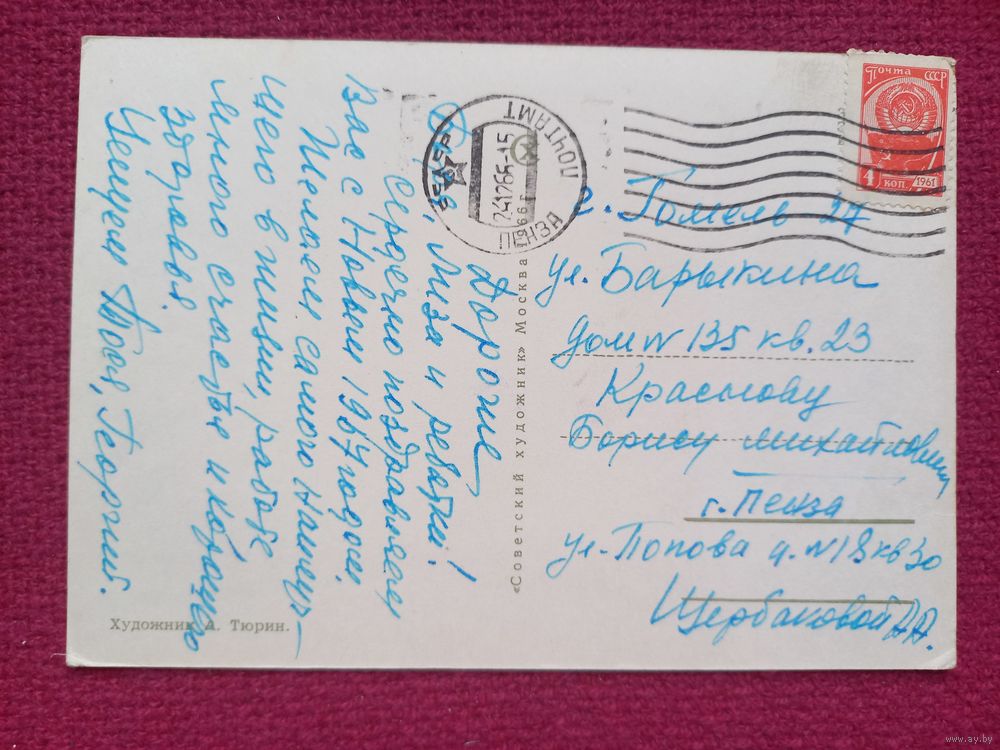 Дорогие
Боря, Лиза и ребятки!
Сердечно поздравляем
Вас с Новым 1967 годом.
Желаем самого наилуч-
шего в жизни, работе
много счастья и большого
здоровья.
Целуем Тося, Георгий.
Художник А. Тюрин.
«Советский художник» Москва 1966 г.
ПЕНЗА ПОЧТАМТ
241266-15
Почта СССР
4 КОП. 1961
г. Гомель 27
ул. Барыкина
дом N 135 кв. 23
Краснову
Борису Михайловичу
г. Пенза
ул. Попова д. N 18 кв 30
Щербаковой А.А.
www.ay.by